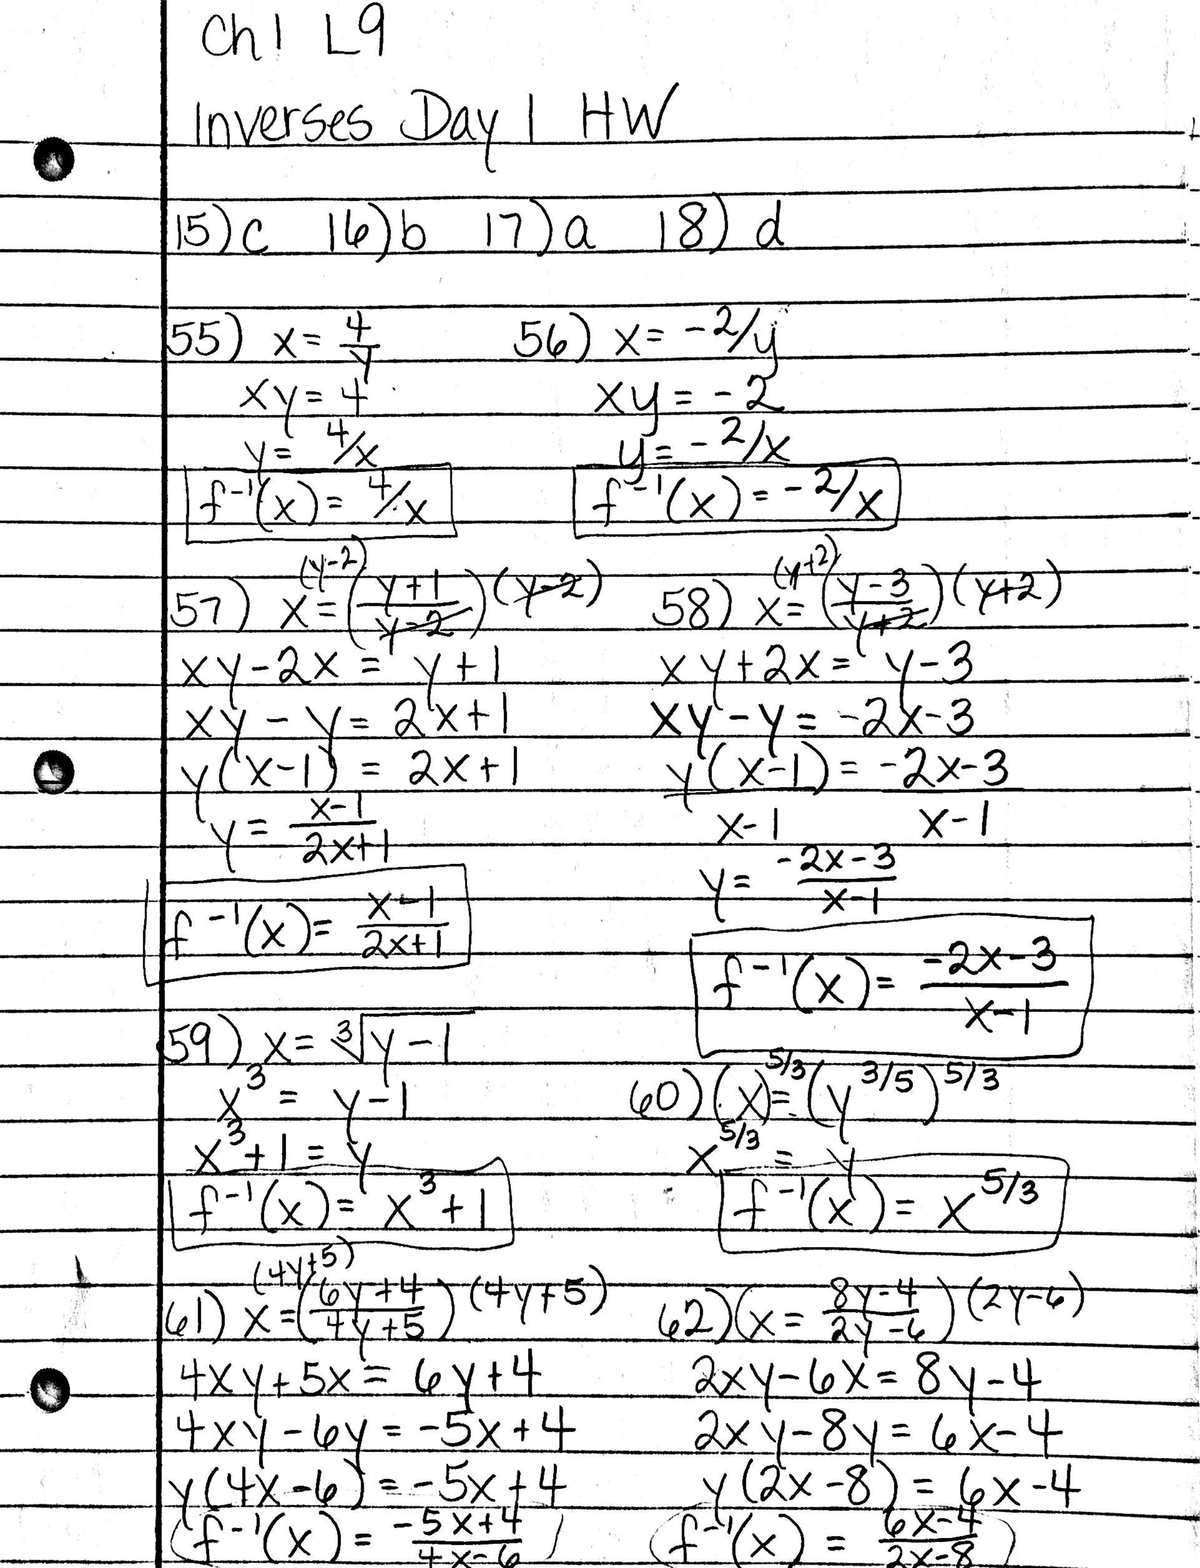 Ch 1 L9
Inverses Day 1 HW
15) c 16) b 17) a 18) d
55) x = 4/y
xy = 4
y = 4/x
f⁻¹(x) = 4/x
56) x = -2/y
xy = -2
y = -2/x
f⁻¹(x) = -2/x
57) (y-2) x = ((y+1)/(y-2)) (y-2)
xy - 2x = y + 1
xy - y = 2x + 1
y(x-1) = 2x + 1
y = (x-1)/(2x+1)
f⁻¹(x) = (x-1)/(2x+1)
58) (y+2) x = ((y-3)/(y+2)) (y+2)
xy + 2x = y - 3
xy - y = -2x - 3
y(x-1) = -2x - 3
x-1 x-1
y = (-2x-3)/(x-1)
f⁻¹(x) = (-2x-3)/(x-1)
59) x = ∛(y-1)
x³ = y - 1
x³ + 1 = y
f⁻¹(x) = x³ + 1
60) (x)^5/3 = (y^3/5)^5/3
x^5/3 = y
f⁻¹(x) = x^5/3
61) (4y+5) x = ((6y+4)/(4y+5)) (4y+5)
4xy + 5x = 6y + 4
4xy - 6y = -5x + 4
y(4x-6) = -5x + 4
f⁻¹(x) = (-5x+4)/(4x-6)
62) (x = (8y-4)/(2y-6)) (2y-6)
2xy - 6x = 8y - 4
2xy - 8y = 6x - 4
y(2x-8) = 6x - 4
f⁻¹(x) = (6x-4)/(2x-8)